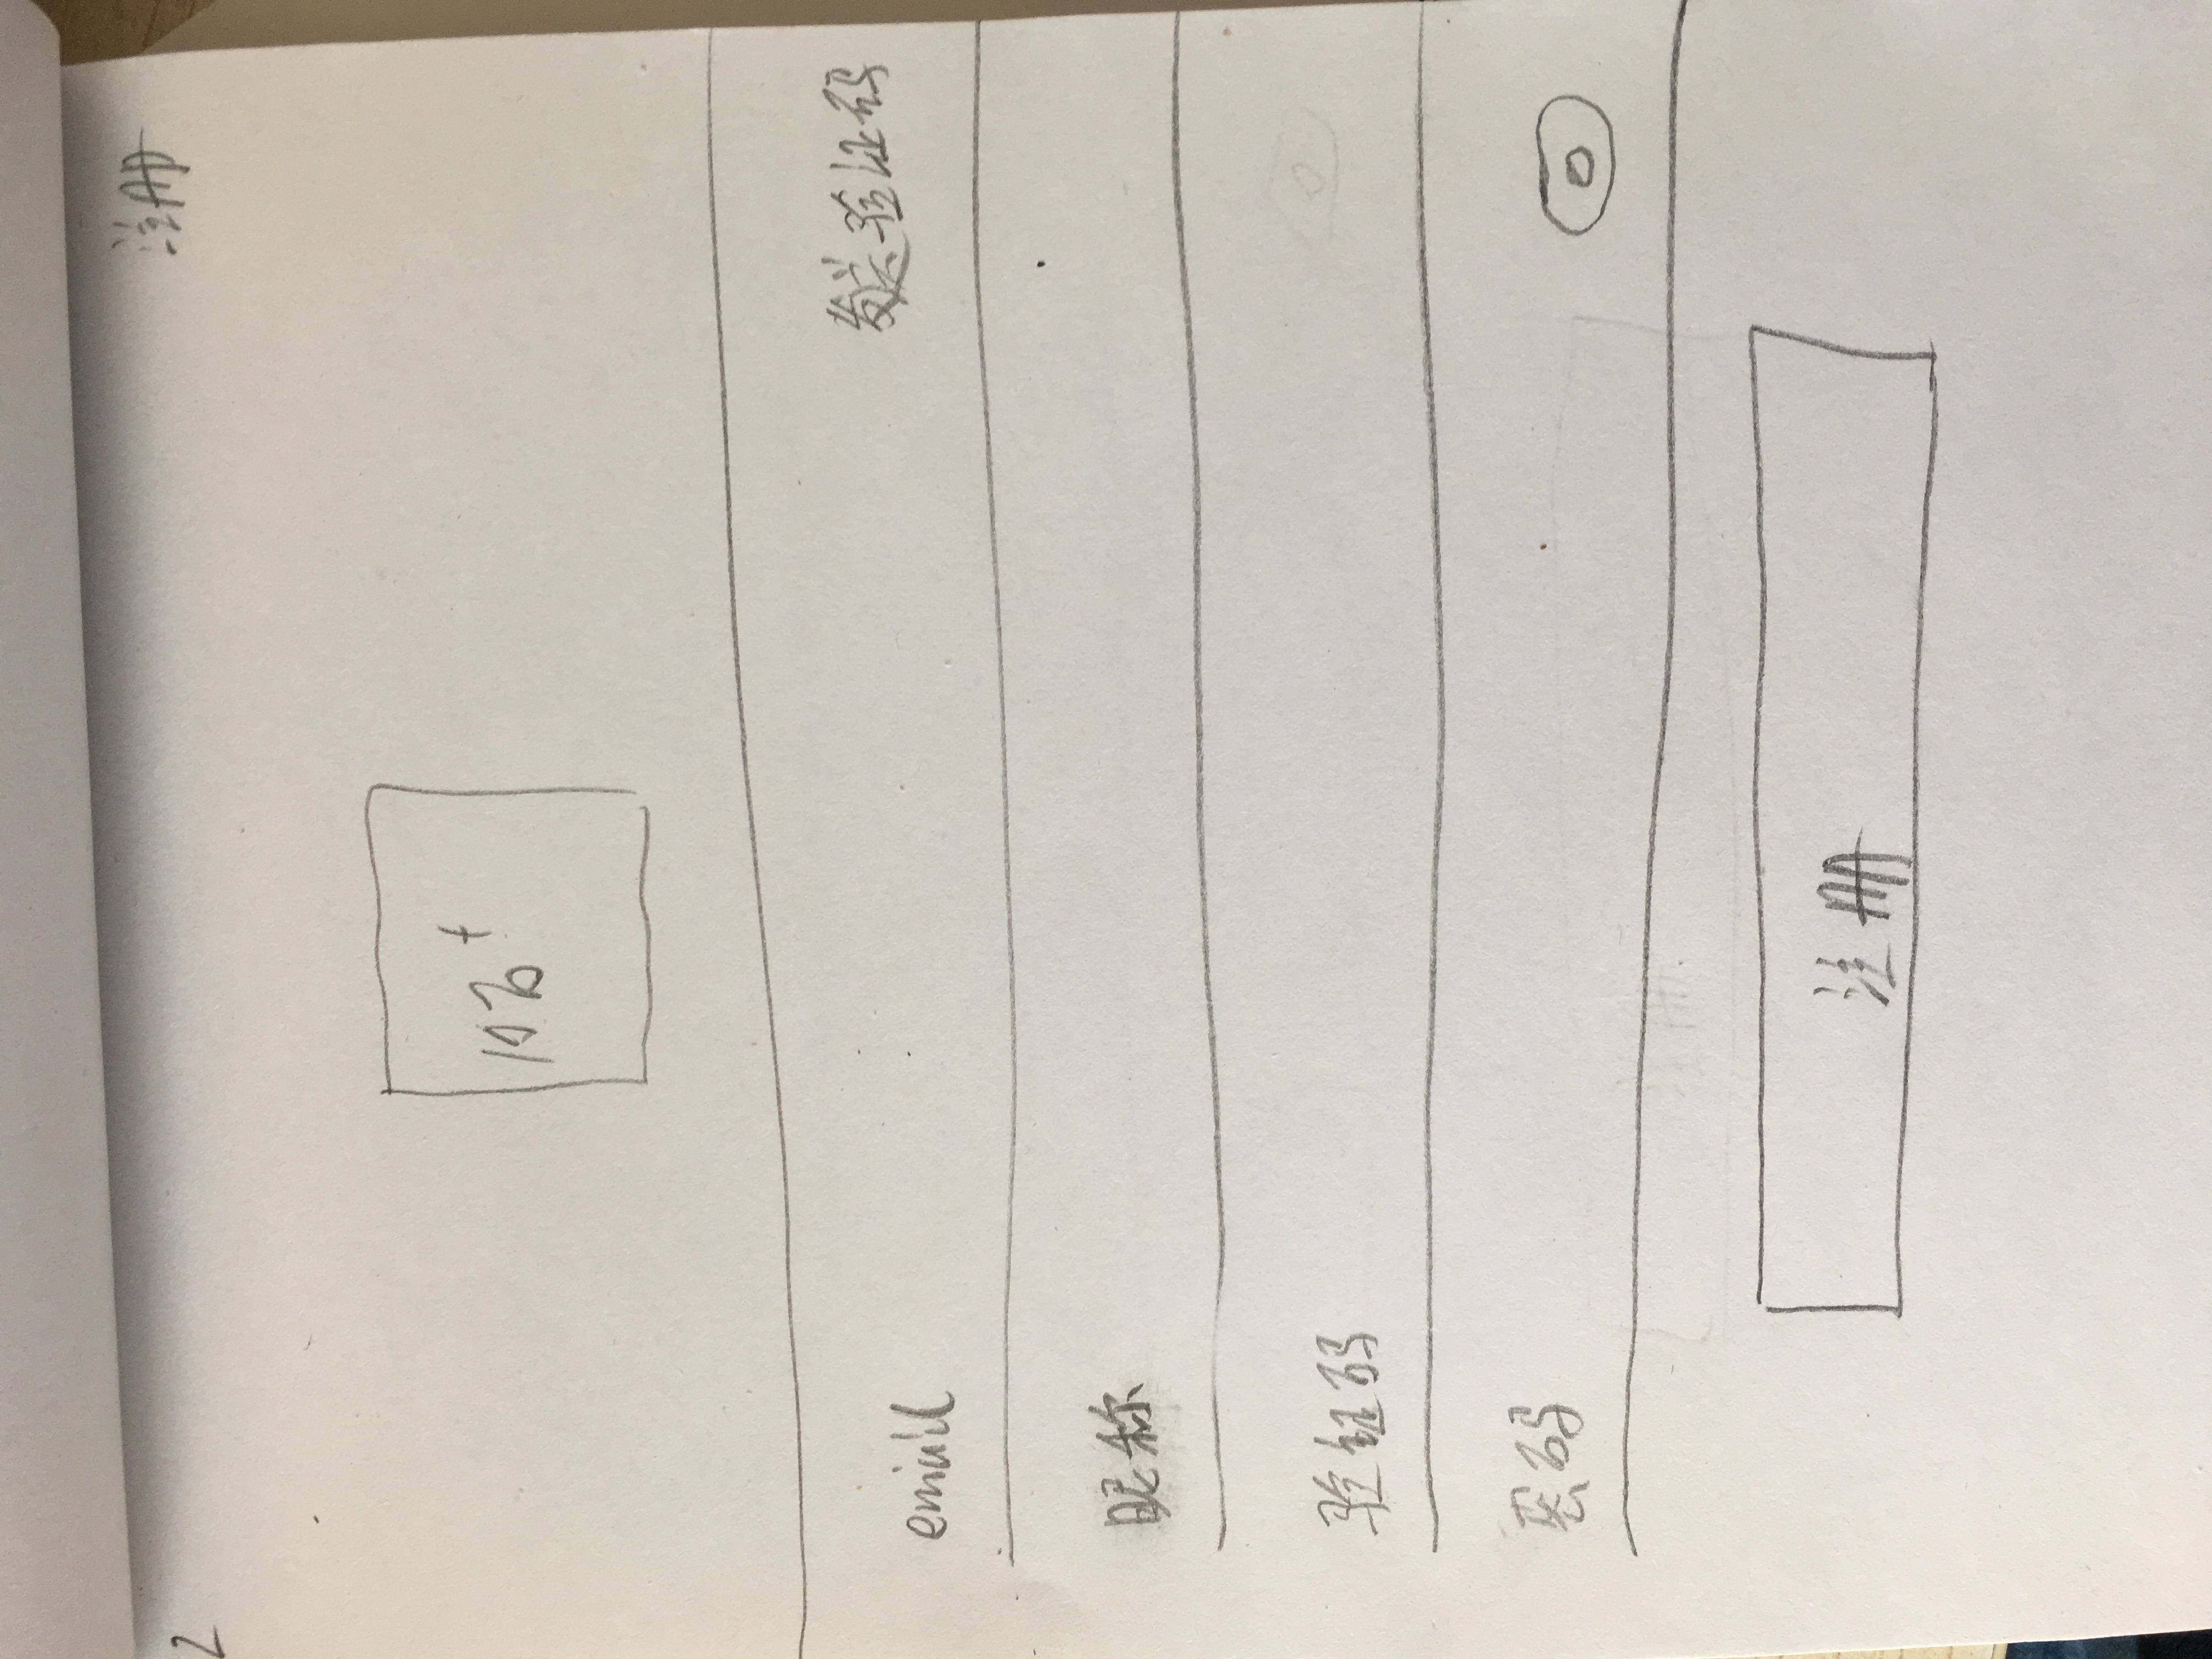 2
注册
email
发送验证码
昵称
验证码
密码
注册